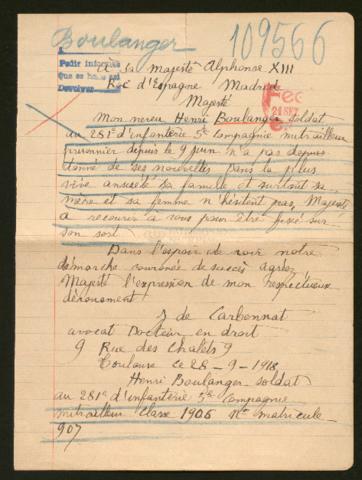 Boulanger
109566
A sa Majesté Alphonse XIII
Pedir informes
que se halle así
Roi d'Espagne Madrid
Majesté
Mon neveu Henri Boulanger soldat
au 281e d'infanterie 5e Compagnie mitrailleur
prisonnier depuis le 9 juin n'a pas depuis
donné de ses nouvelles. Dans la plus
vive anxiété sa famille et surtout sa
mère et sa femme n'hésitent pas, Majesté
à recourir à vous pour être fixé sur
son sort
Dans l'espoir de voir notre
démarche couronée de succès agréez
Majesté l'expression de mon respectueux
dévouement
J de Carbonnat
avocat Docteur en droit
9 Rue des Chalets 9
Toulouse le 28-9-1918
Henri Boulanger soldat
au 281e d'infanterie 5e Compagnie
mitrailleur Classe 1906 No matricule
907